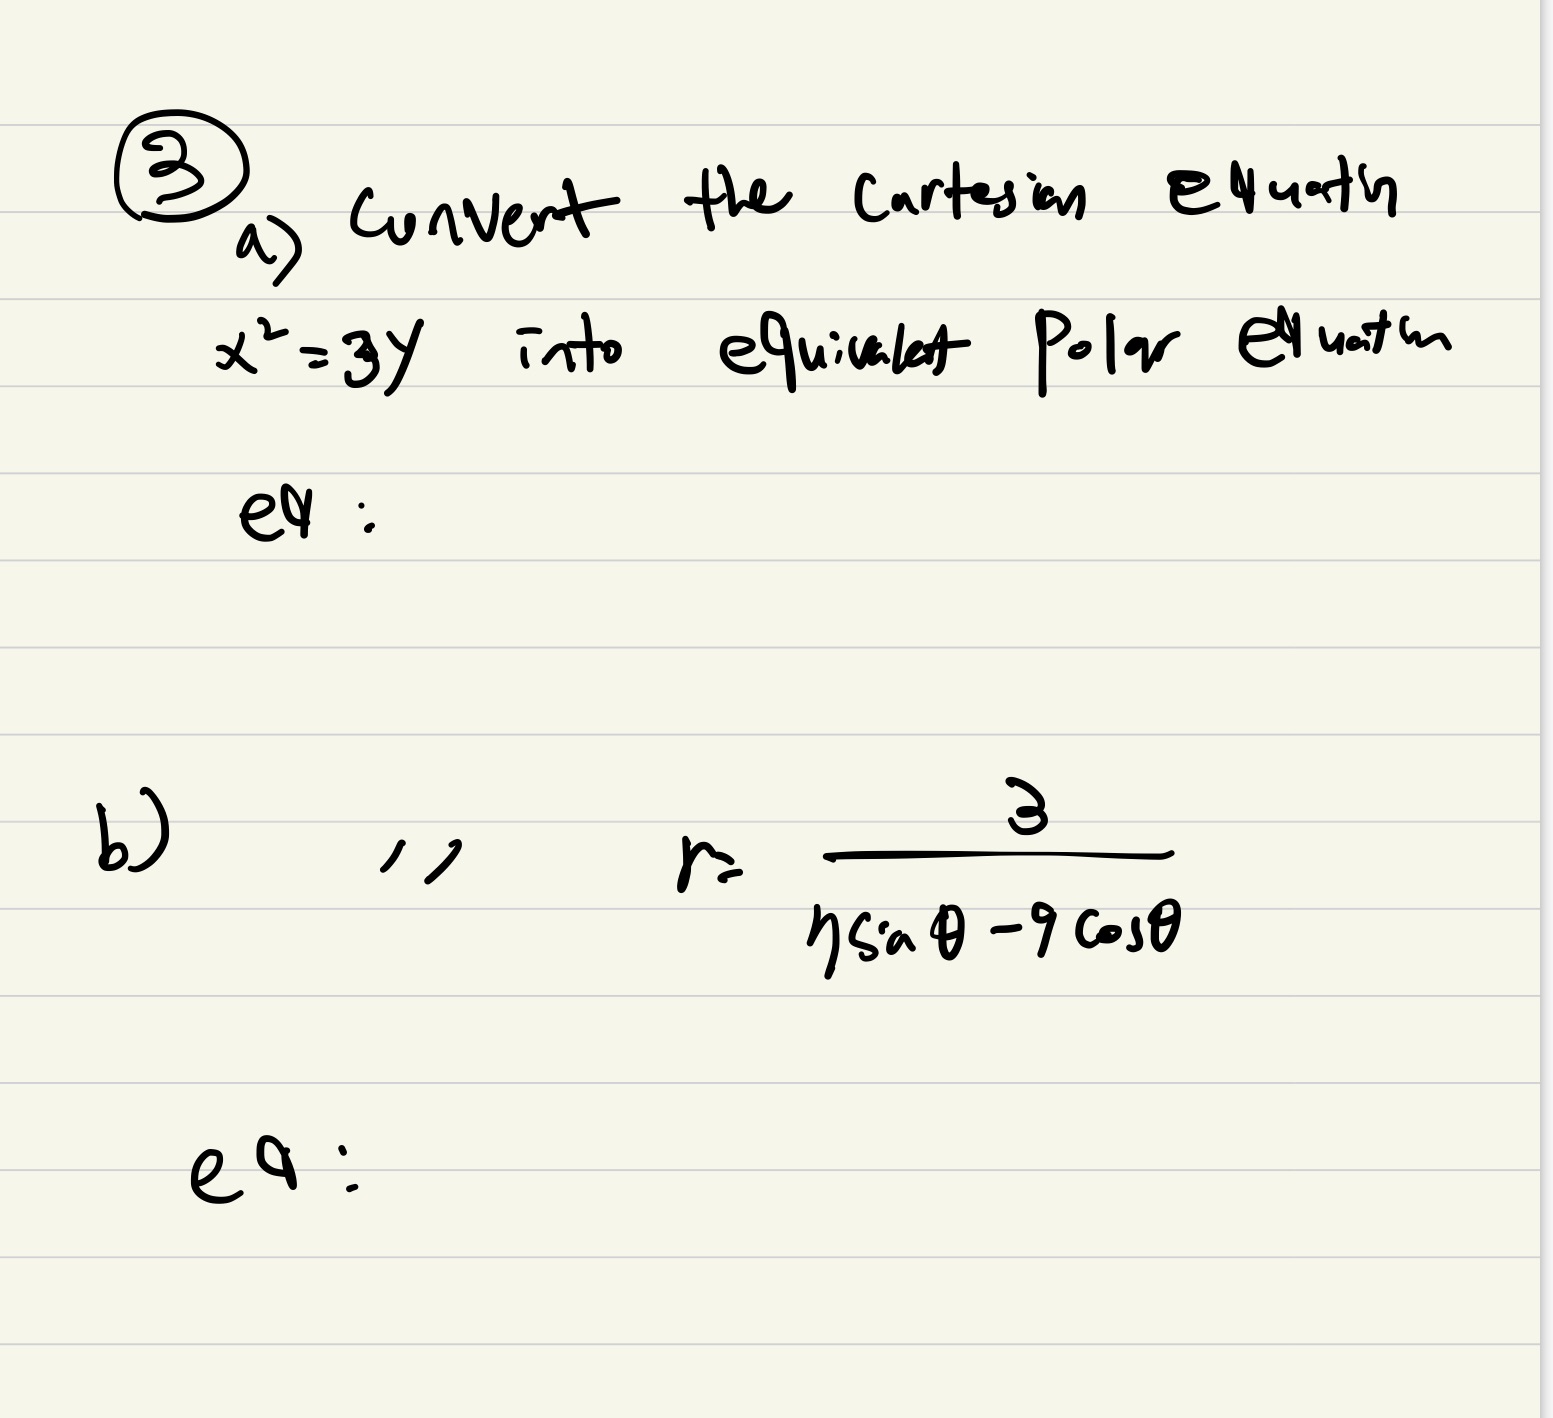 ③
a) Convert the Cartesian equatin
x² = 3y into equivalent polar equation
eq :
b) " r = 3 / 7 sin θ - 9 cos θ
eq :